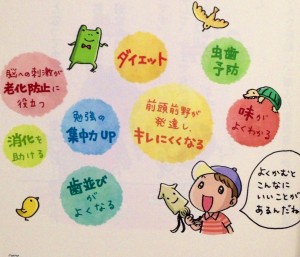 脳への刺激が
老化防止に
役立つ
ダイエット
虫歯
予防
消化を
助ける
勉強の
集中力UP
前頭前野が
発達し、
キレにくくなる
味が
よくわかる
歯並びが
よくなる
よくかむと
こんなに
いいことが
あるんだね